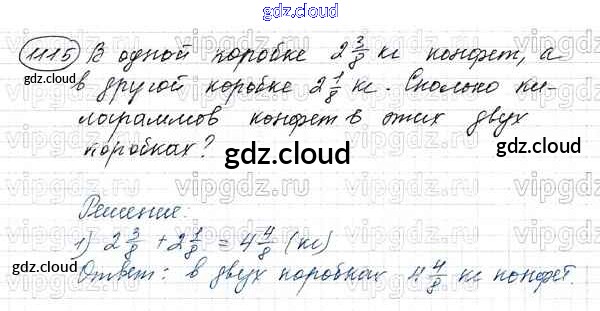 gdz.cloud
1115 В одной коробке 2 3/8 кг конфет, а
gdz.cloud
в другой коробке 2 1/8 кг. Сколько ки-
лограммов конфет в этих двух
коробках?
gdz.cloud
gdz.cloud
vipgdz.ru
Решение:
1) 2 3/8 + 2 1/8 = 4 4/8 (кг)
gdz.cloud
gdz.cloud
Ответ: в двух коробках 4 4/8 кг конфет.